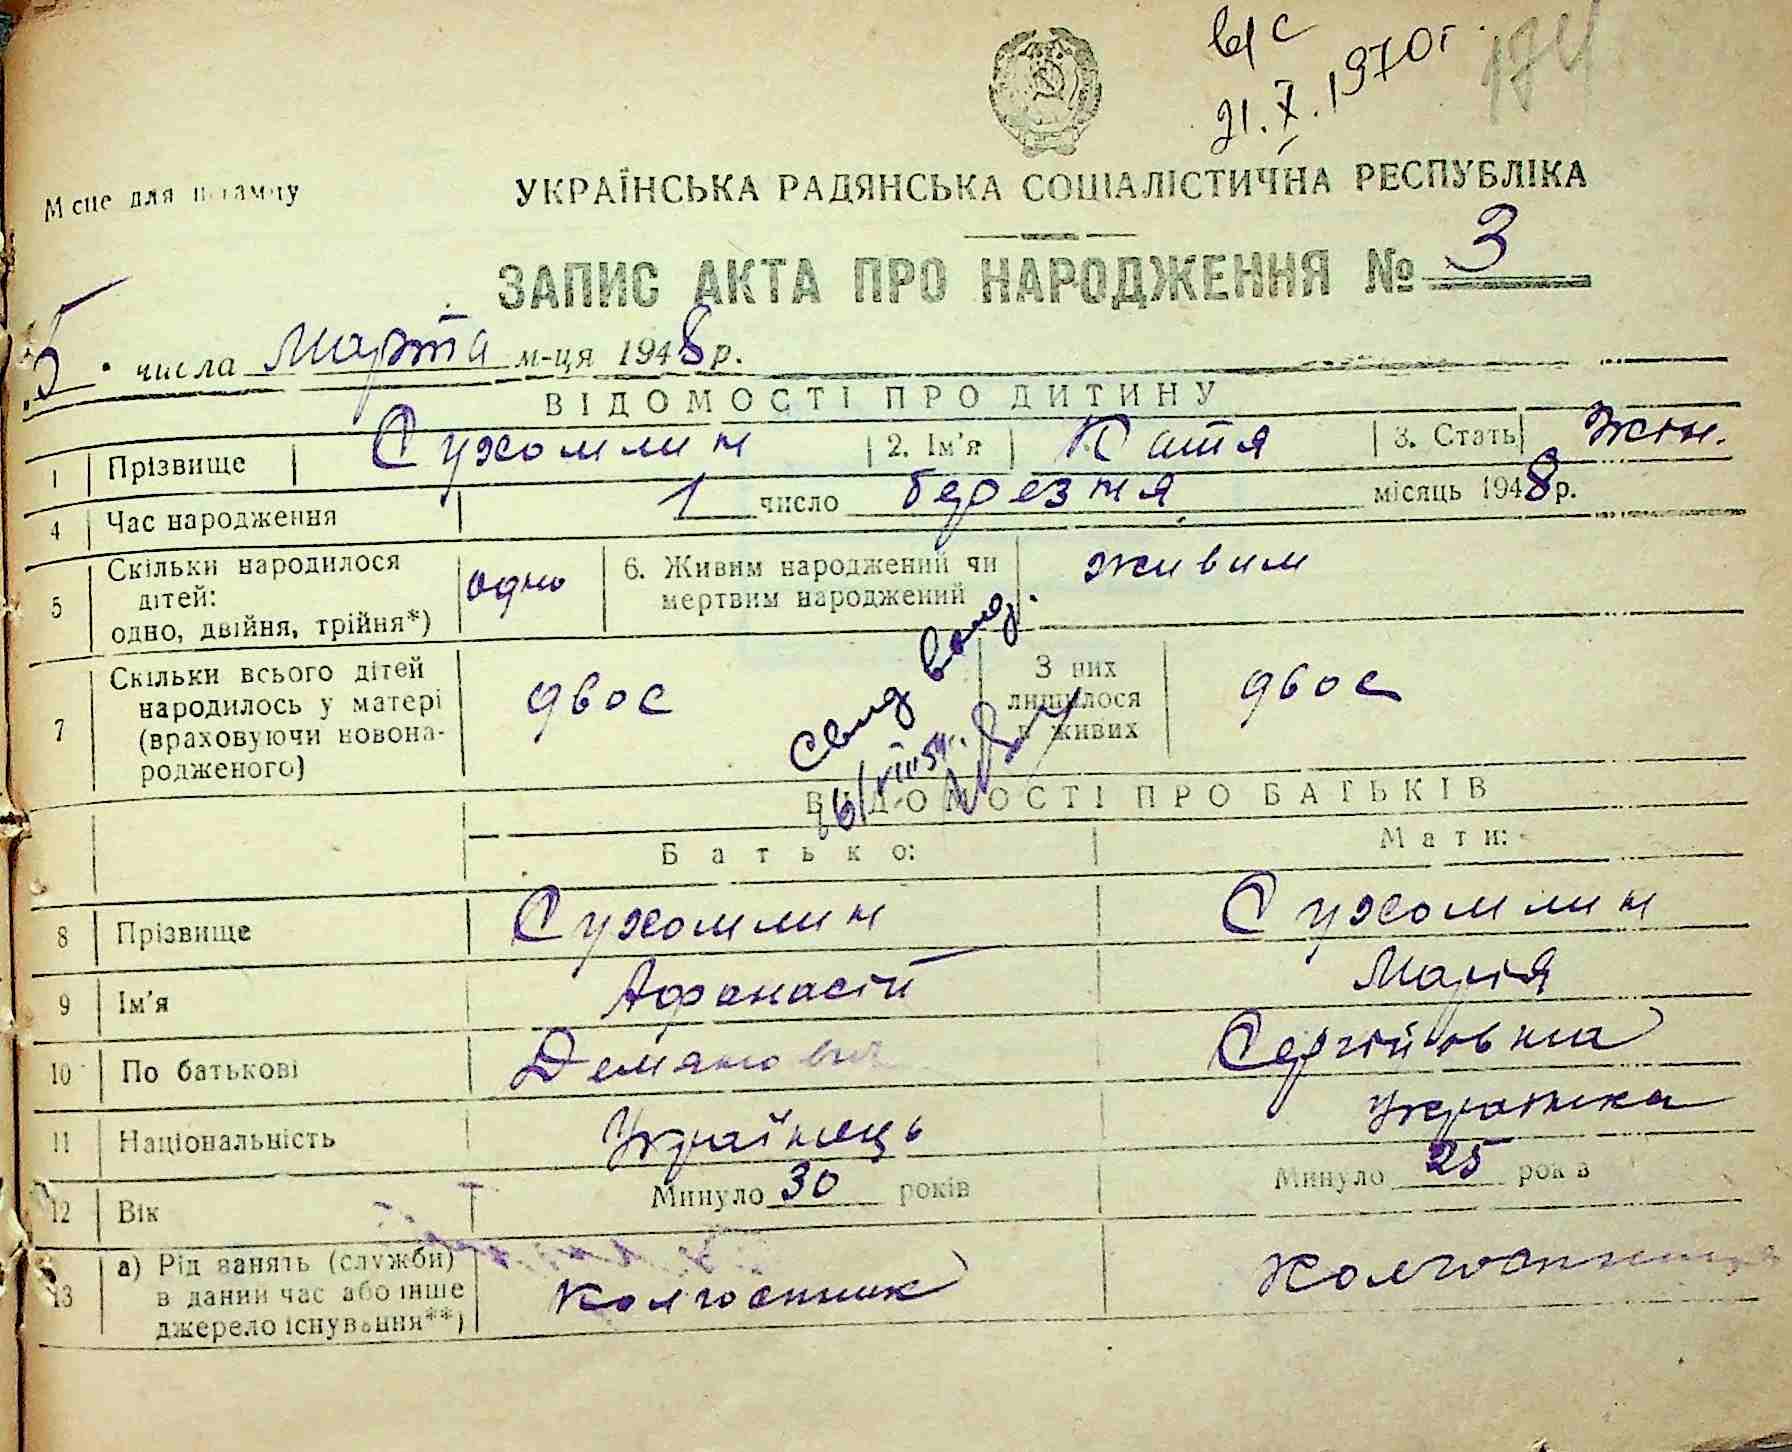 в/с
21.X.1970г.
Місце для штампу
УКРАЇНСЬКА РАДЯНСЬКА СОЦІАЛІСТИЧНА РЕСПУБЛІКА
ЗАПИС АКТА ПРО НАРОДЖЕННЯ № 3
5 числа Марта м-ця 1948 р.
ВІДОМОСТІ ПРО ДИТИНУ
1 Прізвище Сухомлин 2. Ім'я Катя 3. Стать жін.
4 Час народження 1 число березня місяць 1948 р.
5 Скільки народилося дітей: одно, двійня, трійня*) одно 6. Живим народжений чи мертвим народжений живим
7 Скільки всього дітей народилось у матері (враховуючи новонародженого) двоє З них лишилося в живих двоє
ВІДОМОСТІ ПРО БАТЬКІВ
Батько: Мати:
8 Прізвище Сухомлин Сухомлин
9 Ім'я Афанасій Марія
10 По батькові Демянович Сергійовна
11 Національність Українець Українка
12 Вік Минуло 30 років Минуло 25 років
13 а) Рід занять (служби) в даний час або інше джерело існування**) Колгоспник Колгоспниця